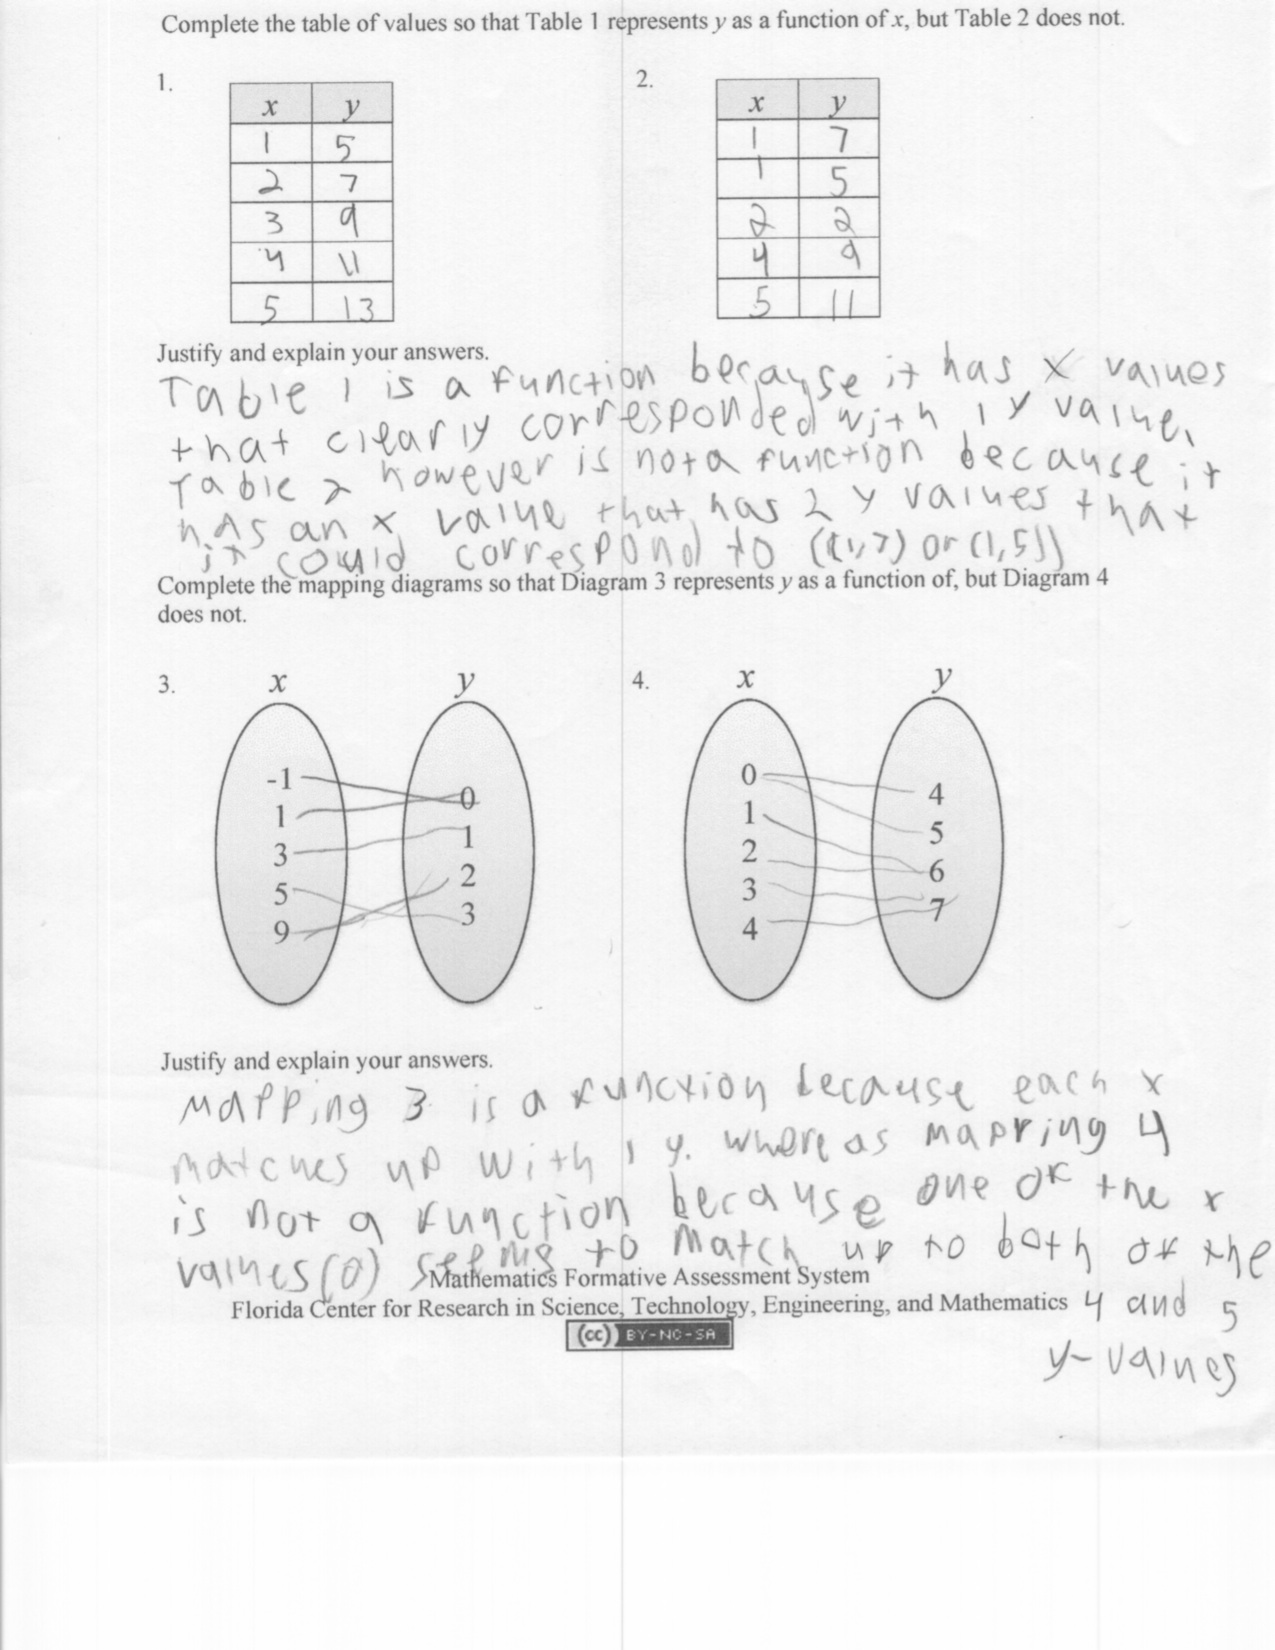 Complete the table of values so that Table 1 represents y as a function of x, but Table 2 does not.
1.
x y
1 5
2 7
3 9
4 11
5 13
2.
x y
1 7
1 5
2 2
4 9
5 11
Justify and explain your answers.
Table 1 is a function because it has x values
that clearly corresponded with 1 y value.
Table 2 however is not a function because it
has an x value that has 2 y values that
it could correspond to ((1,7) or (1,5))
Complete the mapping diagrams so that Diagram 3 represents y as a function of, but Diagram 4
does not.
3.
x y
-1
1
3
5
9
0
1
2
3
4.
x y
0
1
2
3
4
4
5
6
7
Justify and explain your answers.
Mapping 3 is a function because each x
matches up with 1 y. where as mapping 4
is not a function because one of the x
values (0) seems to match up to both of the
4 and 5
y-values
Mathematics Formative Assessment System
Florida Center for Research in Science, Technology, Engineering, and Mathematics
(cc) BY-NC-SA